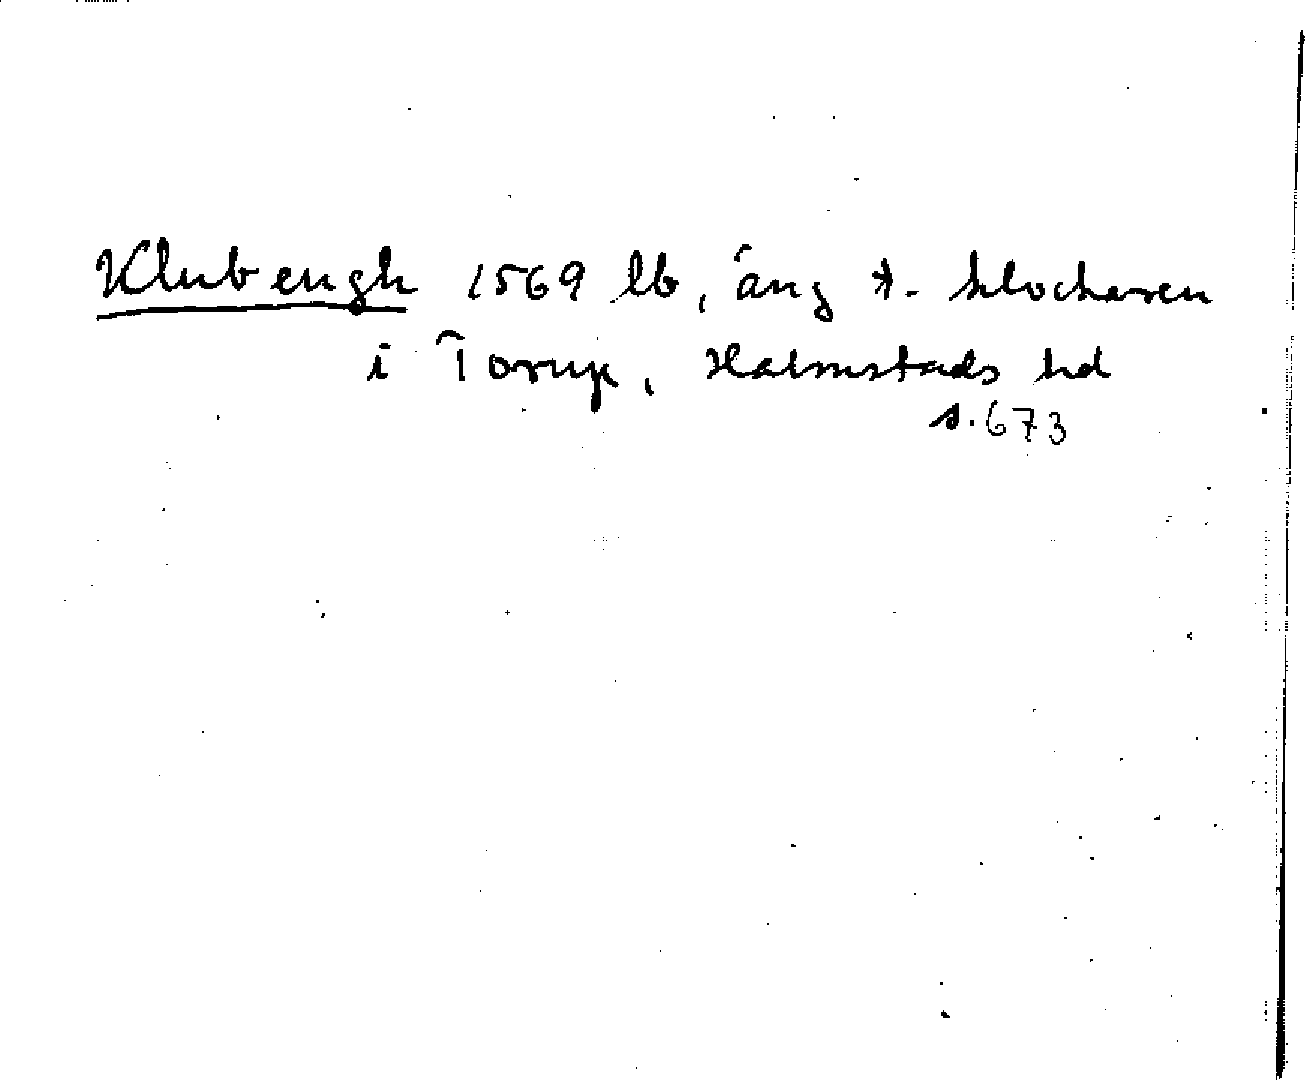 Klubengh 1569 lb, äng t. klockaren
i Torup, Halmstads hd
s. 673